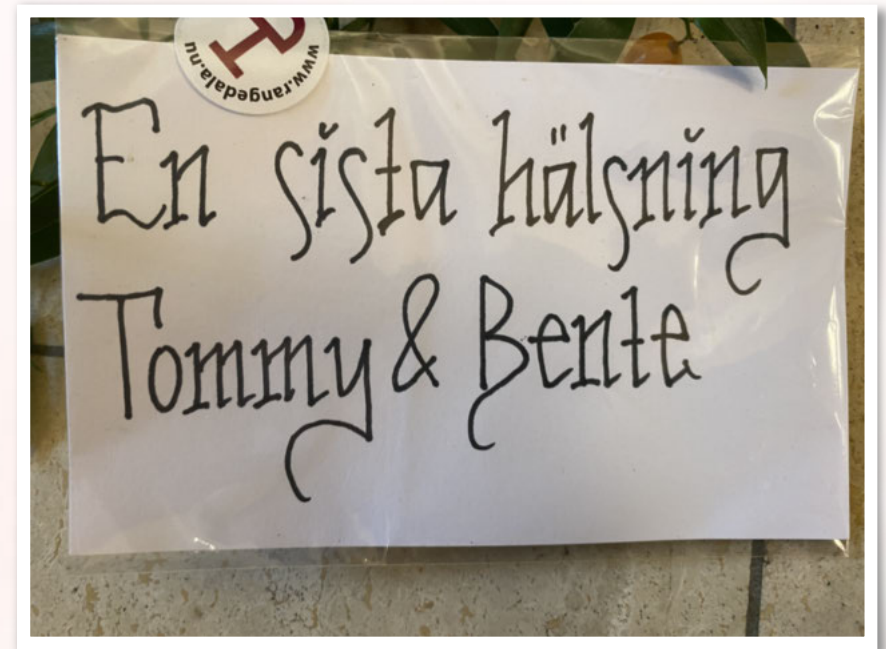 www.rangedala.nu
En sista hälsning
Tommy & Bente